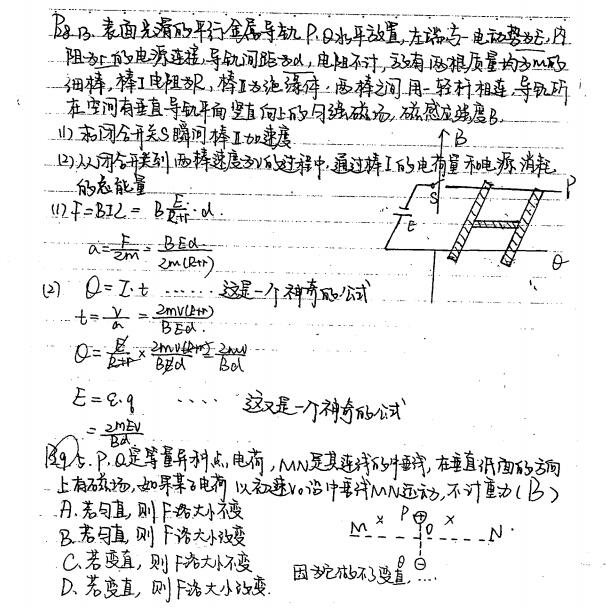 P83 13. 表面光滑的平行金属导轨P.Q水平放置,左端与一电动势为E,内
阻为r的电源连接,导轨间距为d,电阻不计,现有两根质量均为m的
细棒,棒I电阻为R,棒II为绝缘体,两棒之间用一轻杆相连,导轨所
在空间有垂直导轨平面竖直向上的匀强磁场,磁感应强度B.
(1) 求闭合开关S瞬间棒II加速度
(2) 从闭合开关到两棒速度为v的过程中,通过棒I的电荷量和电源消耗
的总能量
(1) F=BIL = B E/(R+r) · d.
a = F/2m = BEd/2m(R+r)
(2) Q=I·t ...... 这是一个神奇的公式
t = v/a = 2mv(R+r)/BEd
Q = E/(R+r) × 2mv(R+r)/BEd = 2mv/Bd
E = ε·q .... 这又是一个神奇的公式
= 2mEv/Bd
B
S
E
P
Q
5. P.Q是等量异种点电荷,MN是其连线的中垂线,在垂直纸面的方向
上有磁场,如果某正电荷以初速v₀沿中垂线MN运动,不计重力(B)
A. 若匀直,则F洛大小不变
B. 若匀直,则F洛大小改变
C. 若变直,则F洛大小不变
D. 若变直,则F洛大小改变.
M × P ⊕ O × N
Q ⊖
因为它做不了变直,....